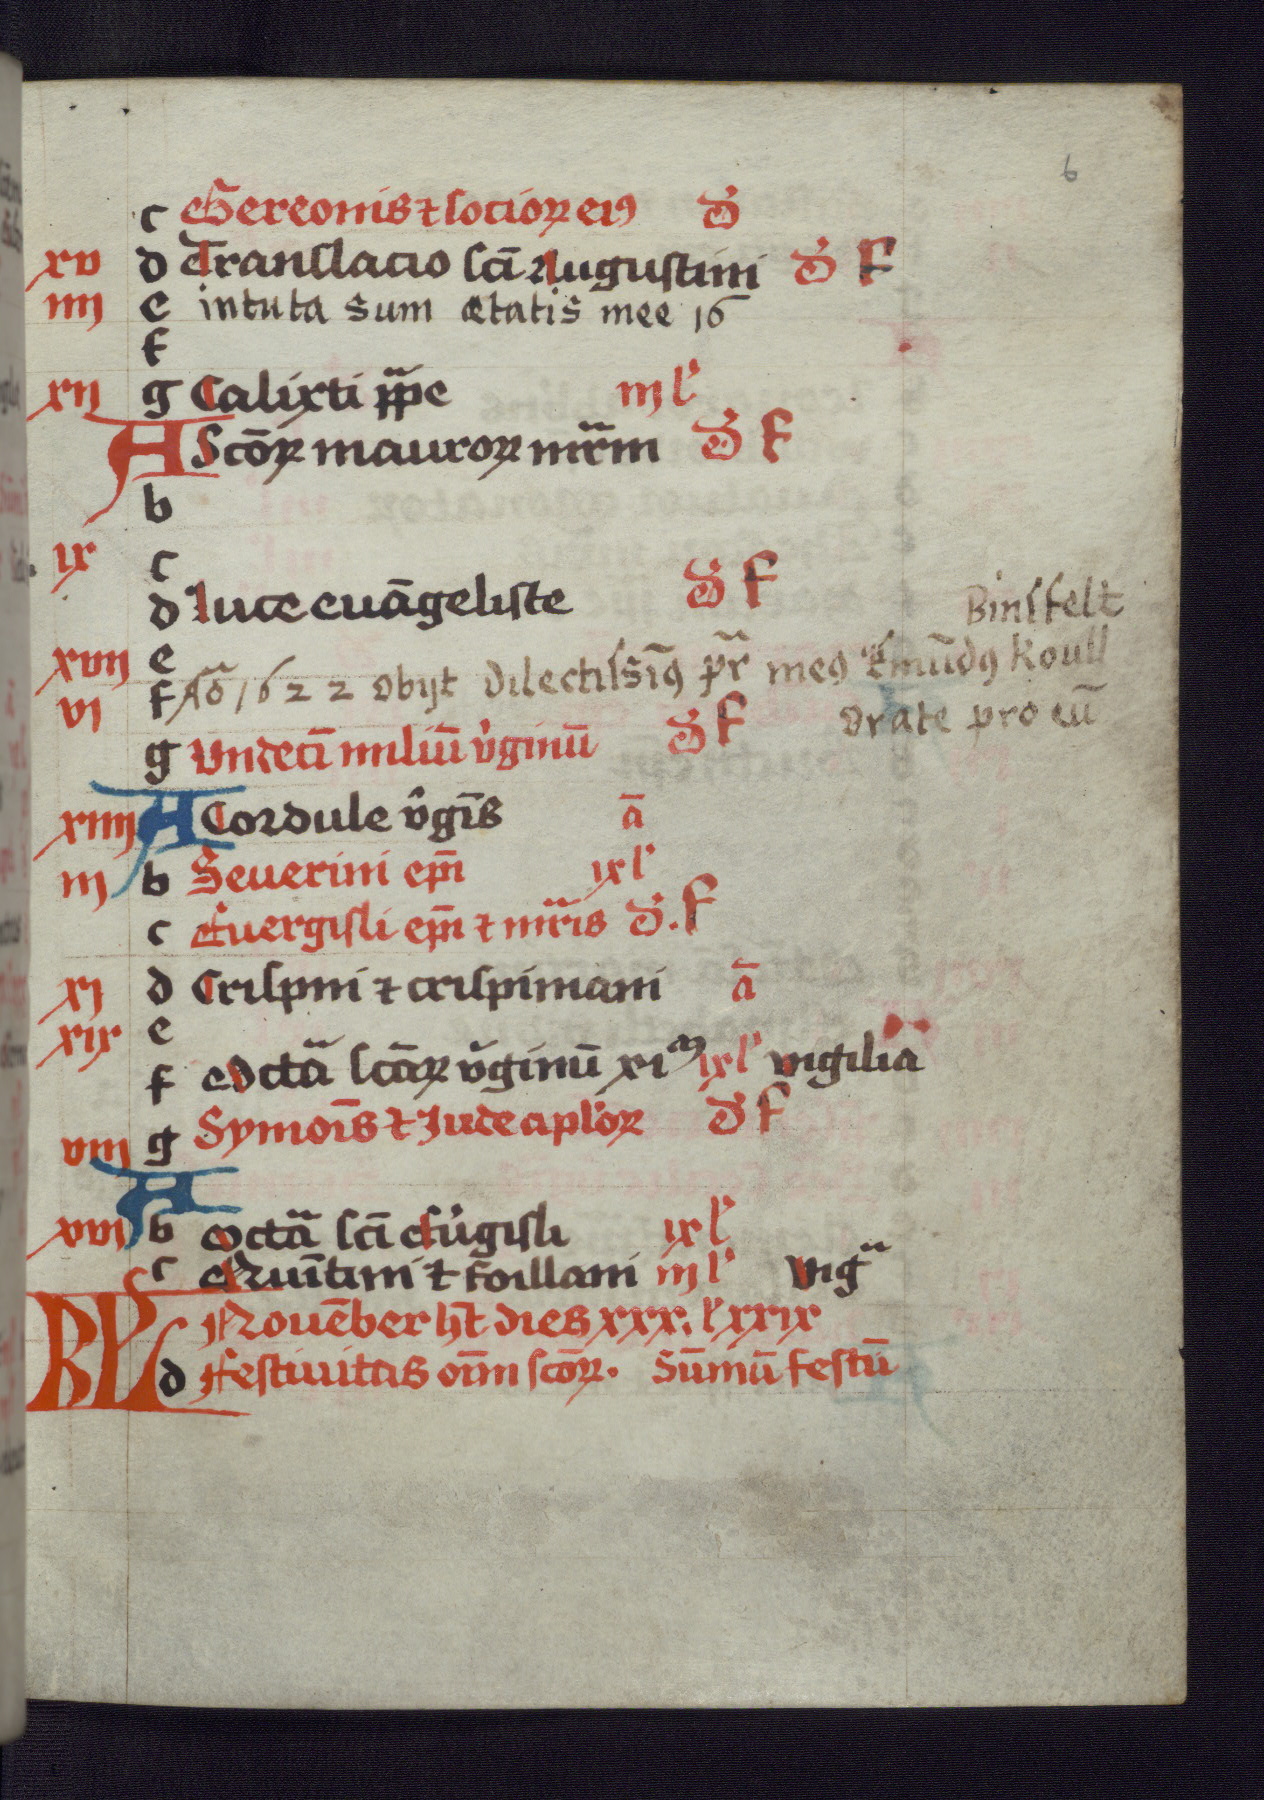 6
c Gereonis ⁊ socioꝝ eiꝰ d
xv d Translacio scī Augustini d F
iiij e intuta sum ætatis mee 16
f
xij g Calixti ppe iij l
A Scōꝝ mauroꝝ mr̄m d F
b
ix c
d luce euāgeliste d F Binsfelt
xvij e
vi f Aō 1622 obijt dilectissīꝰ pr̄ meꝰ Emūdꝰ Koull
orate pro eū
g Vndecī miliū v̓ginū d F
xiiij A Cordule v̓gīs ā
iij b Seuerini ep̄i ix l
c Euergisli ep̄i ⁊ mr̄is d. F
xi d Crispini ⁊ crispiniani ā
xix e
f Octā scāꝝ v̓ginū xi ix l vigilia
viij g Symoīs ⁊ Jude aploꝝ d F
A
xvi b Octā scī Eu̓gisli ix l
c Quītini ⁊ foillani iij l vig̃
KL Nouēber hꝫ dies xxx. l xxix
d Festiuitas oīm scōꝝ. Sūmū festū